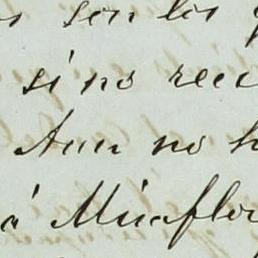 son los
si no reci
Aun no h
á Miraflor